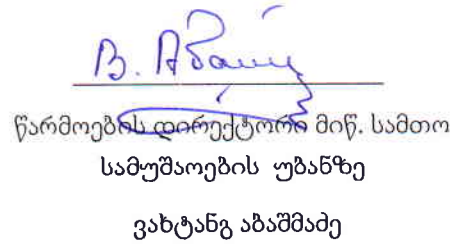 წარმოების დირექტორი მიწ. სამთო
სამუშაოების უბანზე
ვახტანგ აბაშმაძე